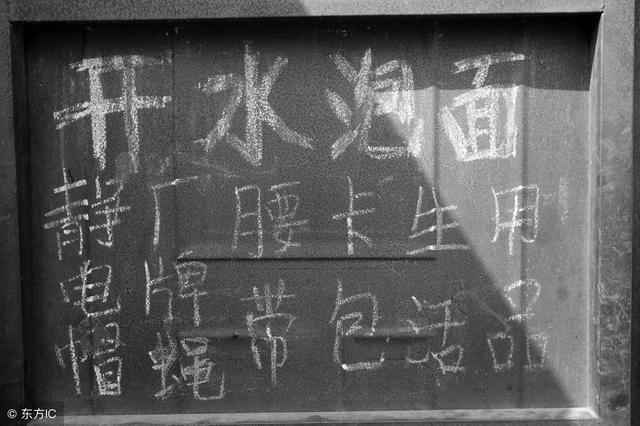 开水泡面
静电帽
厂牌蝇
腰带
卡包
生活
用品
© 东方IC